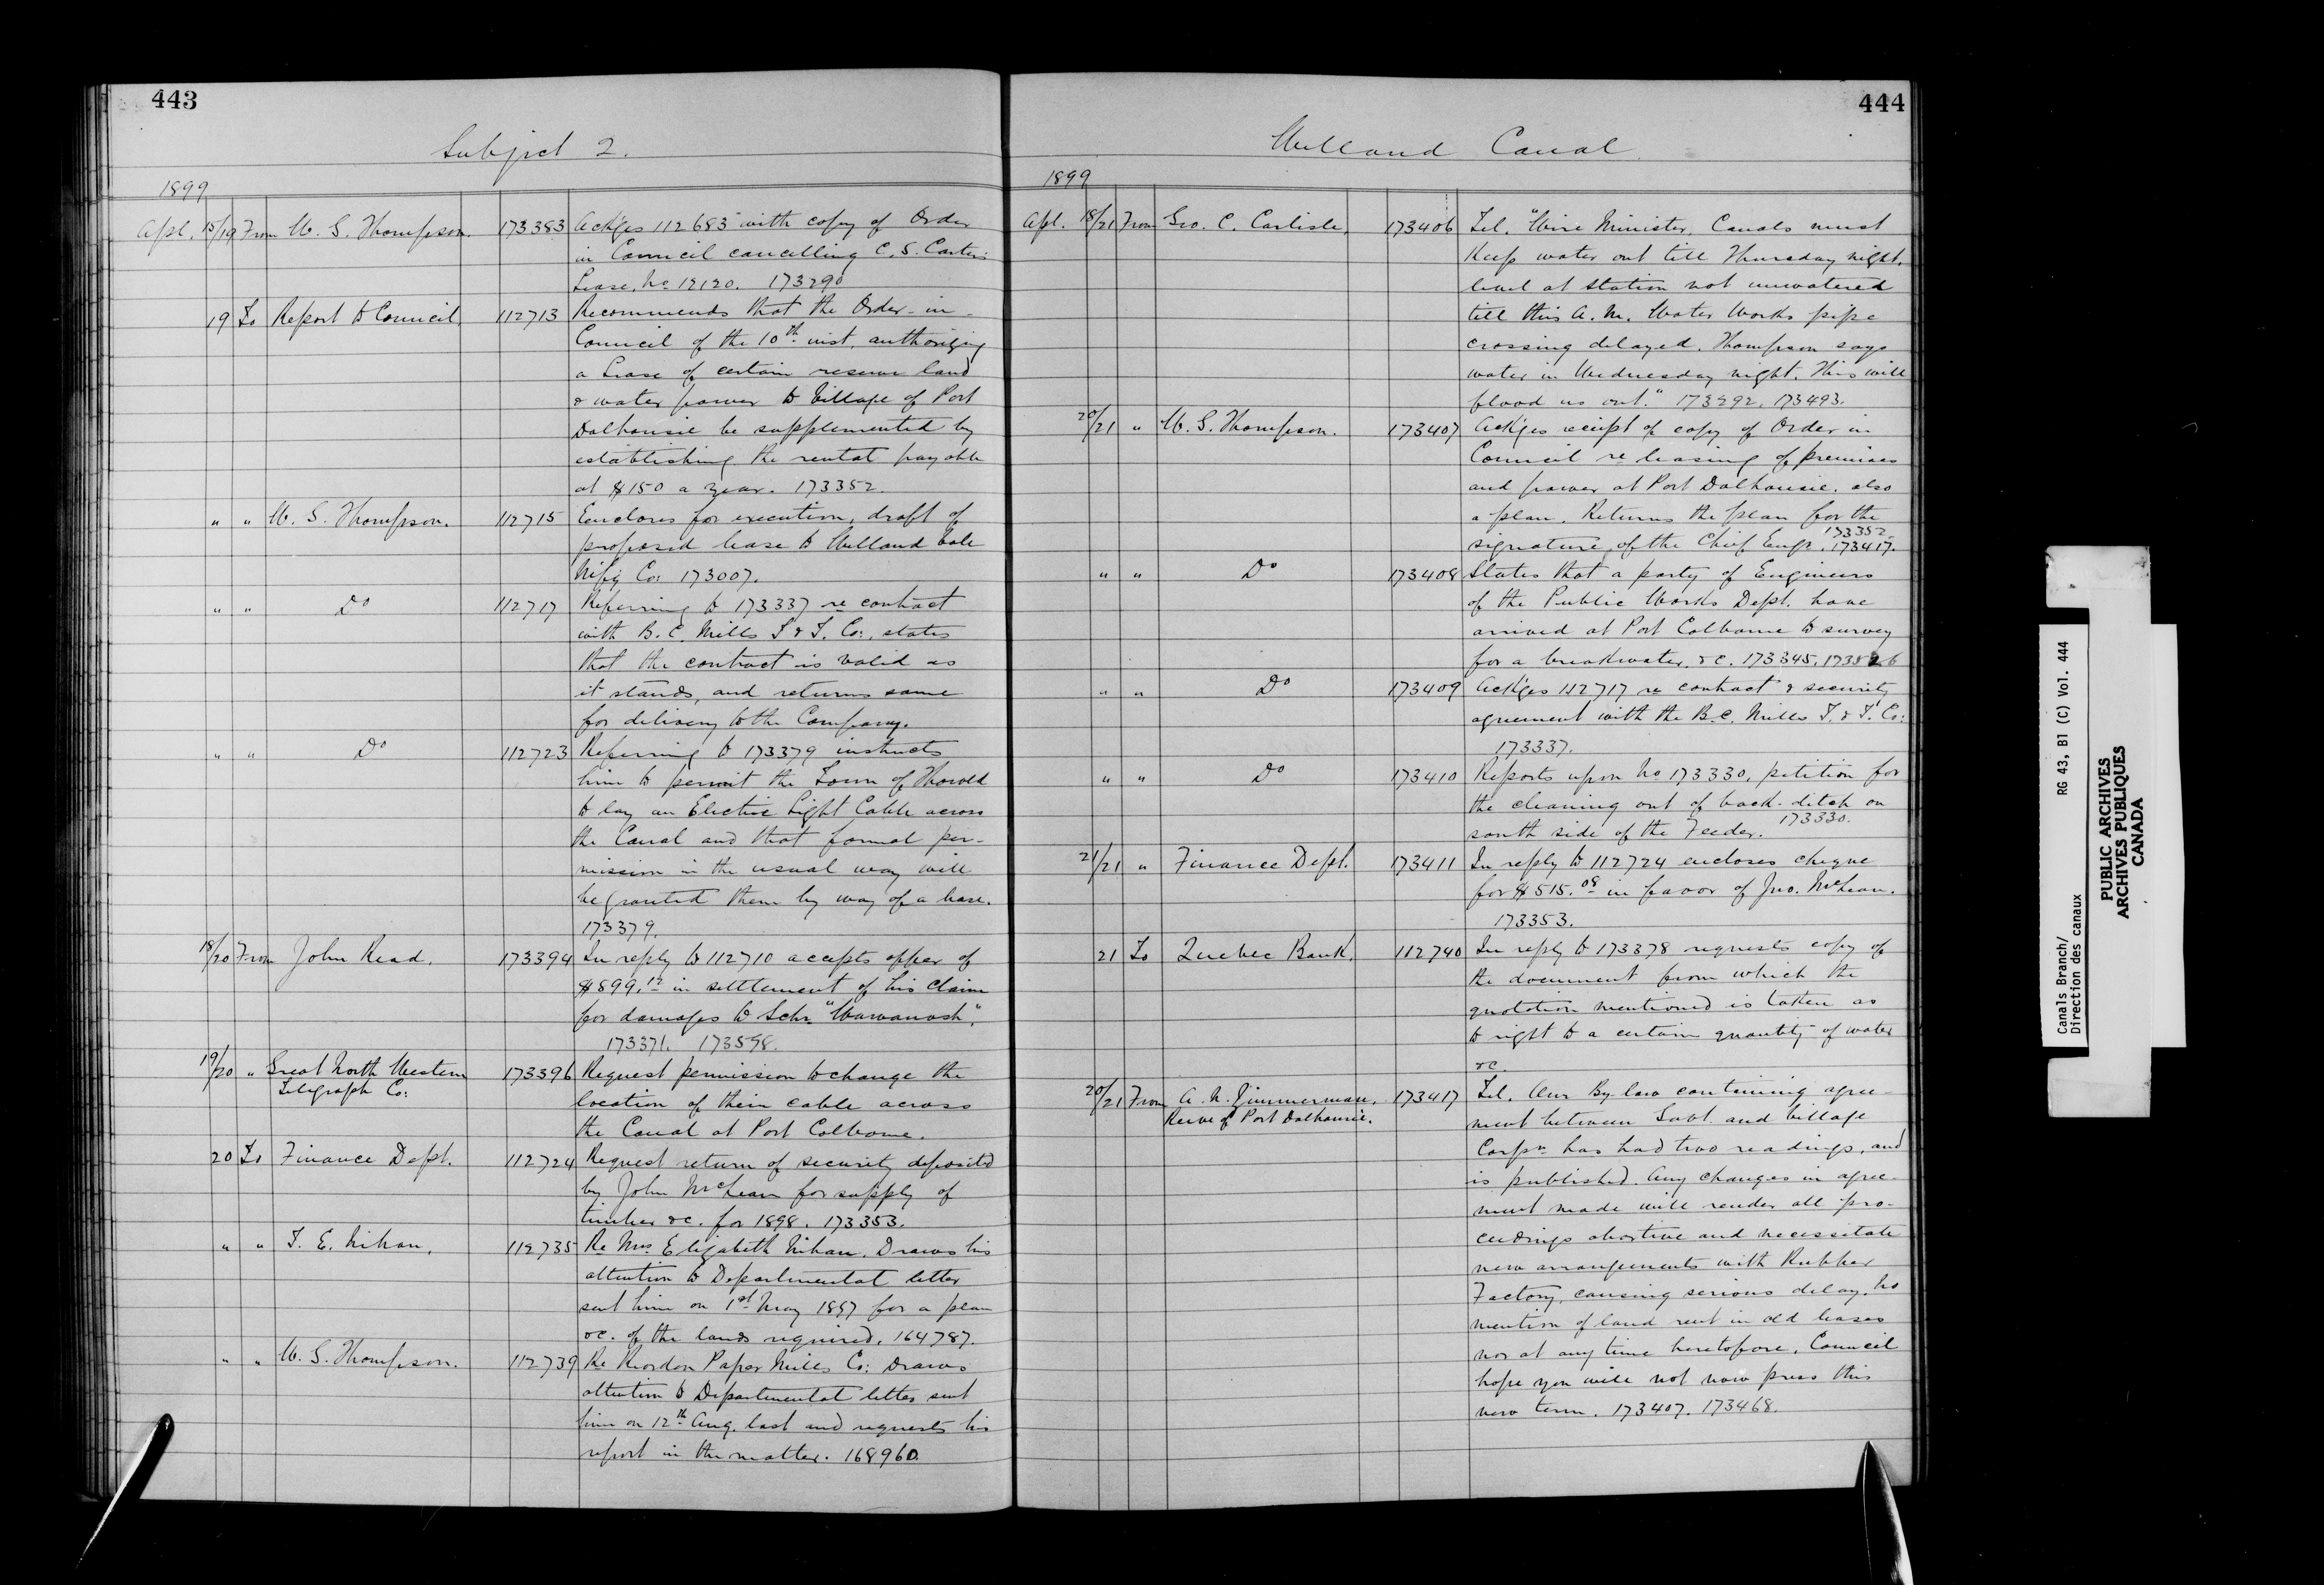 443
Subject 2.
1899
Apl. 15/19 From W. G. Thompson. 173383 Ackges 112683 with copy of Order
in Council cancelling C. S. Carter's
Lease, No 12120. 173290
19 To Report to Council. 112713 Recommends that the Order-in-
Council of the 10th inst. authorizing
a Lease of certain reserve land
& water power to Village of Port
Dalhousie be supplemented by
establishing the rental payable
at $150 a year. 173352.
" " W. G. Thompson. 112715 Encloses for execution, draft of
proposed lease to Welland Vale
Mfg Co: 173007.
" " Do 112717 Referring to 173337 re contract
with B. C. Mills T & T. Co:, states
that the contract is valid as
it stands, and returns same
for delivery to the Company.
" " Do 112723 Referring to 173379 instructs
him to permit the Town of Thorold
to lay an Electric Light Cable across
the Canal and that formal per-
mission in the usual way will
be granted them by way of a lease.
173379.
18/20 From John Read. 173394 In reply to 112710 accepts offer of
$899.12 in settlement of his claim
for damages to Schr. "Wawanosh".
173371. 173598.
19/20 " Great North Western
Telegraph Co: 173396 Request permission to change the
location of their cable across
the Canal at Port Colborne.
20 To Finance Dept. 112724 Request return of security deposited
by John McLean for supply of
timber &c. for 1898. 173353.
" " T. E. Nihan. 112735 Re Mrs Elizabeth Nihan. Draws his
attention to Departmental letter
sent him on 1st May 1897 for a plan
&c. of the lands required. 164787.
" " W. G. Thompson. 112739 Re Riordon Paper Mills Co: Draws
attention to Departmental letter sent
him on 12th Aug. last and requests his
report in the matter. 168960.
444
Welland Canal.
1899
Apl. 18/21 From Geo. C. Carlisle. 173406 Tel. "Wire Minister, Canals must
Keep water out till Thursday night.
level at station not unwatered
till this A.M. Water Works pipe
crossing delayed. Thompson says
water in Wednesday night. This will
flood us out." 173292. 173493.
20/21 " W. G. Thompson. 173407 Ackges receipt of copy of Order in
Council re leasing of premises
and power at Port Dalhousie, also
a plan. Returns the plan for the
signature of the Chief Engr. 173352. 173417.
" " Do 173408 States that a party of Engineers
of the Public Works Dept. have
arrived at Port Colborne to survey
for a breakwater, &c. 173345. 173526
" " Do 173409 Ackges 112717 re contract & security
agreement with the B.C. Mills T. & T. Co:
173337.
" " Do 173410 Reports upon No 173330, petition for
the cleaning out of back-ditch on
south side of the Feeder. 173330.
21/21 " Finance Dept. 173411 In reply to 112724 encloses cheque
for $515.08 in favor of Jno. McLean.
173353.
21 To Quebec Bank. 112740 In reply to 173378 requests copy of
the document from which the
quotation mentioned is taken as
to right to a certain quantity of water
&c.
20/21 From A. N. Zimmerman,
Reeve of Port Dalhousie. 173417 Tel. Our By-law containing agree-
ment between Govt. and Village
Corpn has had two readings, and
is published. Any changes in agree-
ment made will render all pro-
ceedings abortive and necessitate
new arrangements with Rubber
Factory, causing serious delay. No
mention of land rent in old leases
nor at any time heretofore. Council
hope you will not now press this
new term. 173407. 173468.
Canals Branch/ RG 43, B1 (C) Vol. 444
Direction des canaux
PUBLIC ARCHIVES
ARCHIVES PUBLIQUES
CANADA